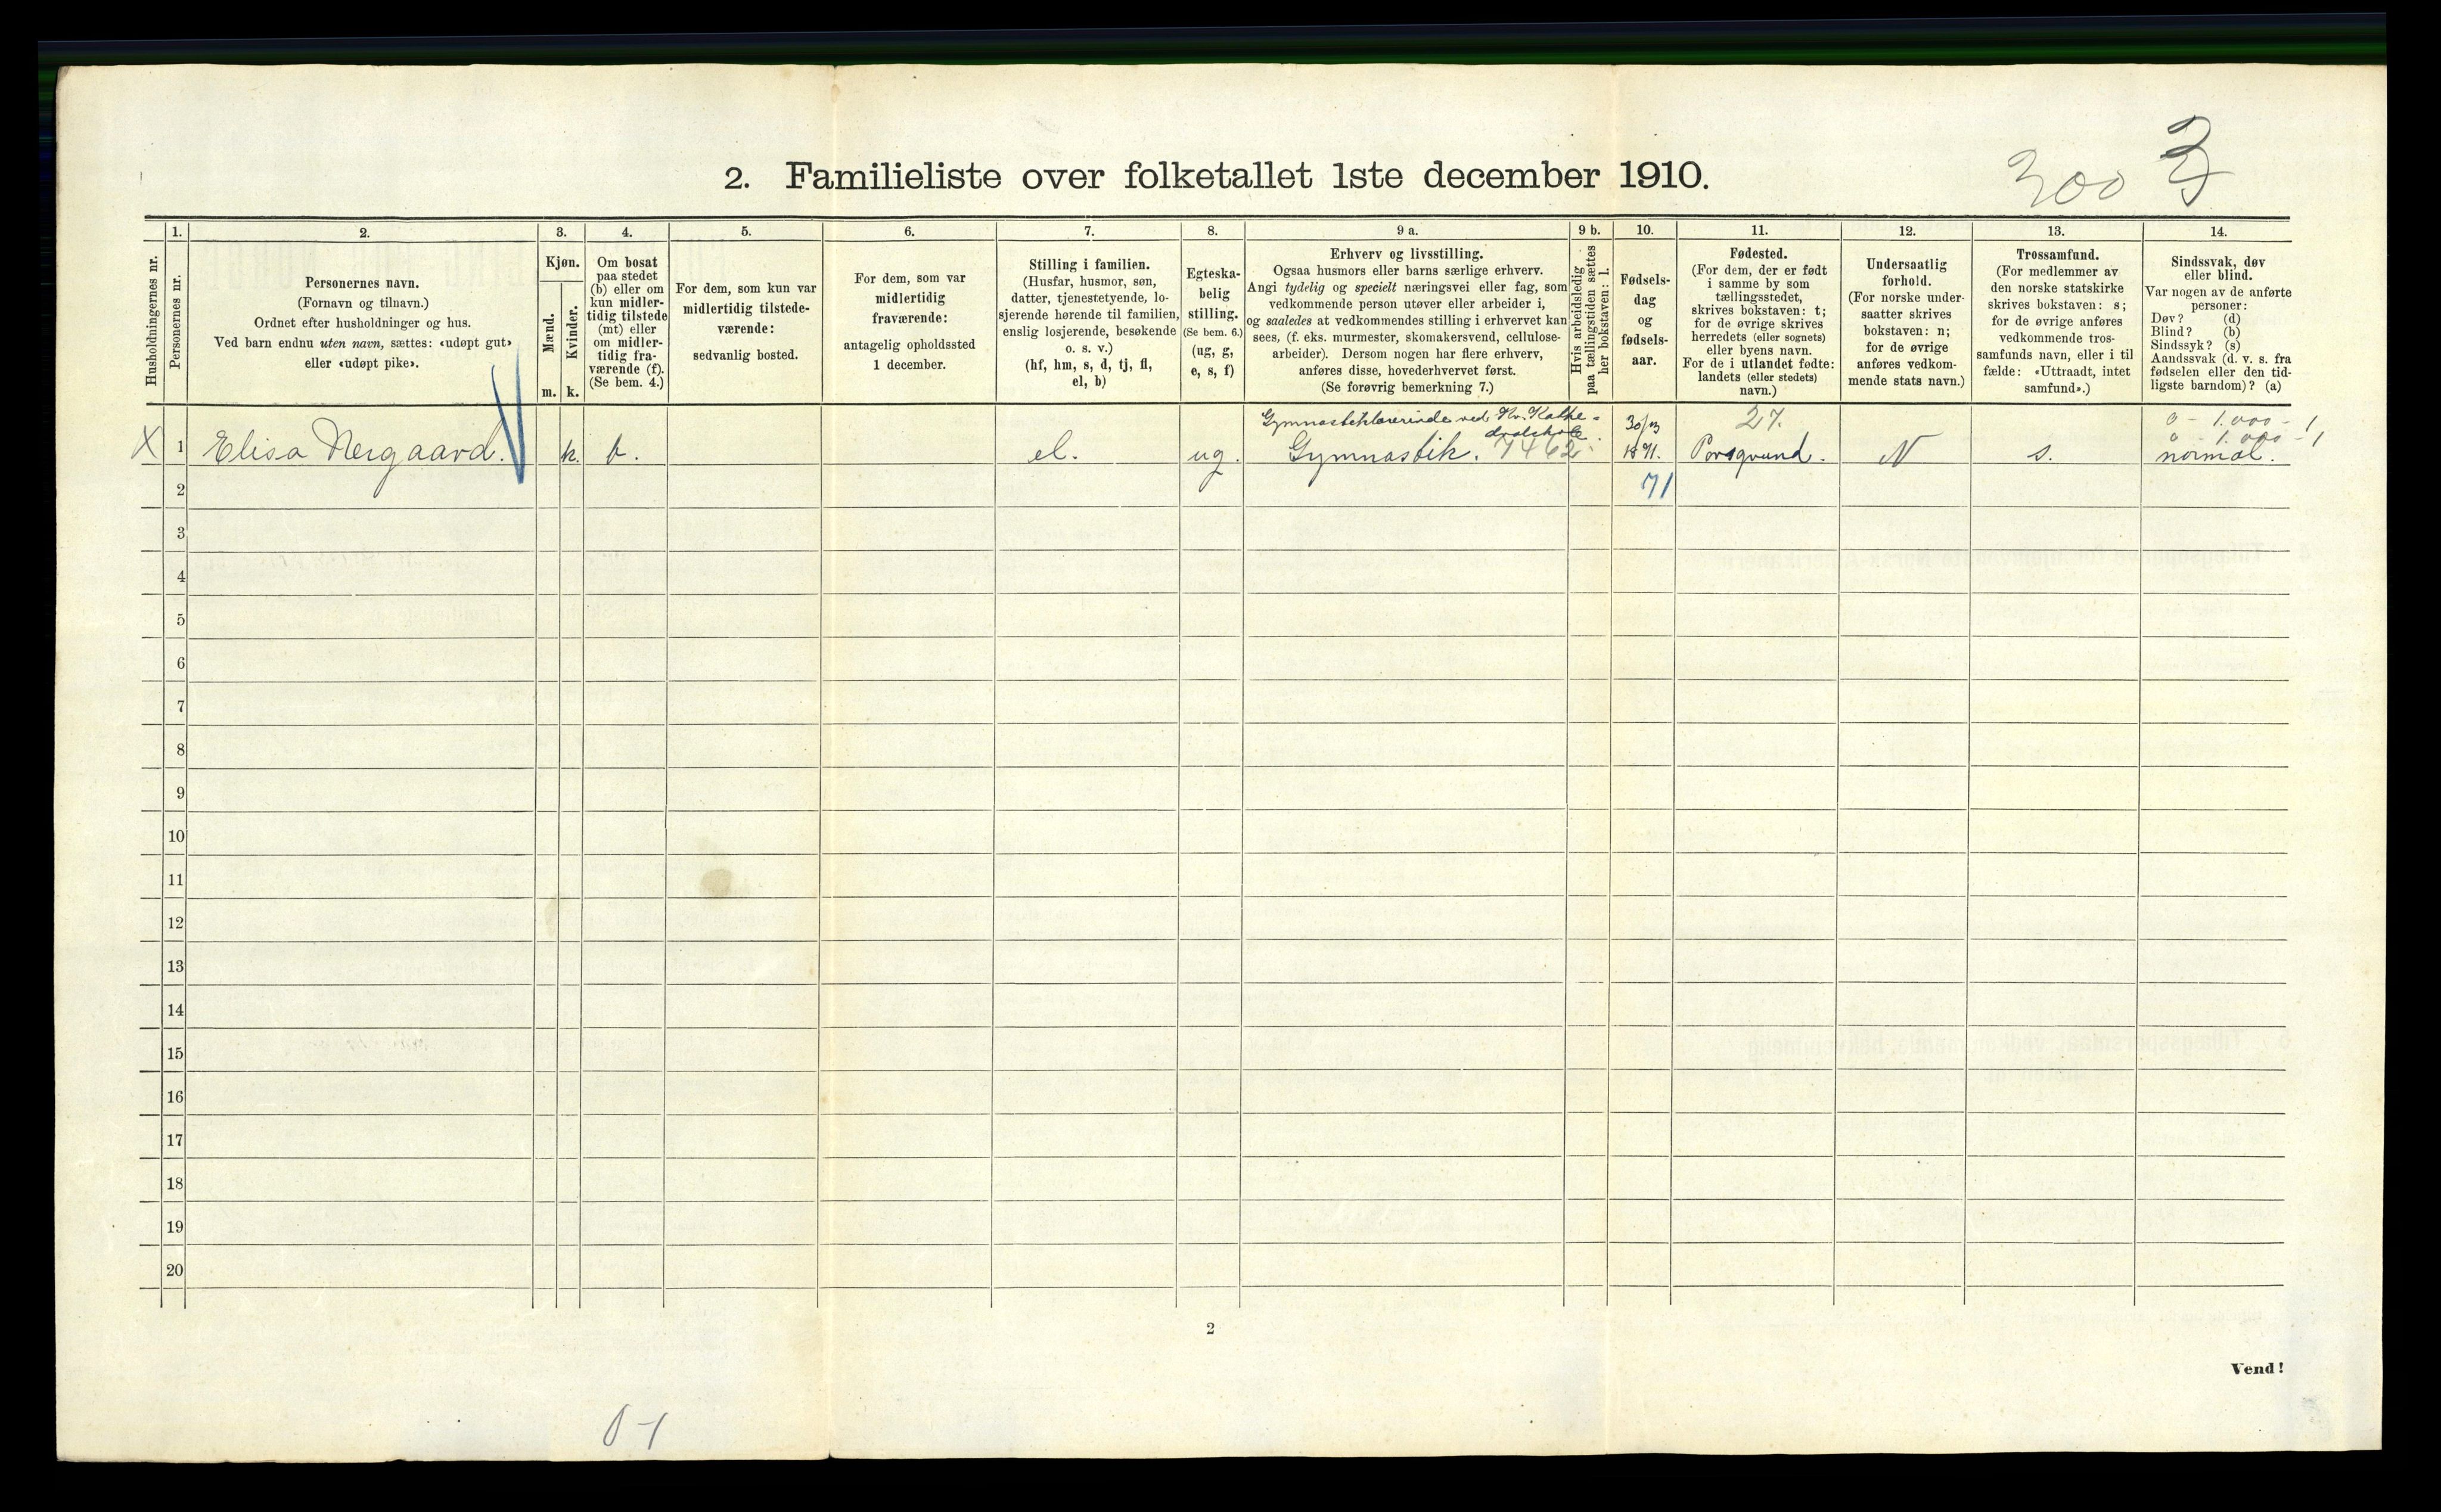 2. Familieliste over folketallet 1ste december 1910.
300 3
Husholdningernes nr.
1.
Personernes nr.
2.
Personernes navn.
(Fornavn og tilnavn.)
Ordnet efter husholdninger og hus.
Ved barn endnu uten navn, sættes: «udøpt gut»
eller «udøpt pike».
3.
Kjøn.
Mænd.
m.
Kvinder.
k.
4.
Om bosat
paa stedet
(b) eller om
kun midler-
tidig tilstede
(mt) eller
om midler-
tidig fra-
værende (f).
(Se bem. 4.)
5.
For dem, som kun var
midlertidig tilstede-
værende:
sedvanlig bosted.
6.
For dem, som var
midlertidig
fraværende:
antagelig opholdssted
1 december.
7.
Stilling i familien.
(Husfar, husmor, søn,
datter, tjenestetyende, lo-
sjerende hørende til familien,
enslig losjerende, besøkende
o. s. v.)
(hf, hm, s, d, tj, fl,
el, b)
8.
Egteska-
belig
stilling.
(Se bem. 6.)
(ug, g,
e, s, f)
9 a.
Erhverv og livsstilling.
Ogsaa husmors eller barns særlige erhverv.
Angi tydelig og specielt næringsvei eller fag, som
vedkommende person utøver eller arbeider i,
og saaledes at vedkommendes stilling i erhvervet kan
sees, (f. eks. murmester, skomakersvend, cellulose-
arbeider). Dersom nogen har flere erhverv,
anføres disse, hovederhvervet først.
(Se forøvrig bemerkning 7.)
9 b.
Hvis arbeidsledig
paa tællingstiden sættes
her bokstaven: l.
10.
Fødsels-
dag
og
fødsels-
aar.
11.
Fødested.
(For dem, der er født
i samme by som
tællingsstedet,
skrives bokstaven: t;
for de øvrige skrives
herredets (eller sognets)
eller byens navn.
For de i utlandet fødte:
landets (eller stedets)
navn.)
12.
Undersaatlig
forhold.
(For norske under-
saatter skrives
bokstaven: n;
for de øvrige
anføres vedkom-
mende stats navn.)
13.
Trossamfund.
(For medlemmer av
den norske statskirke
skrives bokstaven: s;
for de øvrige anføres
vedkommende tros-
samfunds navn, eller i til
fælde: «Uttraadt, intet
samfund».)
14.
Sindssvak, døv
eller blind.
Var nogen av de anførte
personer:
Døv? (d)
Blind? (b)
Sindssyk? (s)
Aandssvak (d. v. s. fra
fødselen eller den tid-
ligste barndom)? (a)
Gymnastiklærerinde ved Kr. Kathe-
dralskole.
30/3
27.
0 - 1.000 - 1
0 - 1.000 - 1
X 1 Elisa Nergaard. k. b. el. ug. Gymnastik. 7462 1891. Porsgrund. N s. normal.
2 71
3
4
5
6
7
8
9
10
11
12
13
14
15
16
17
18
19
20
2
Vend!
0-1